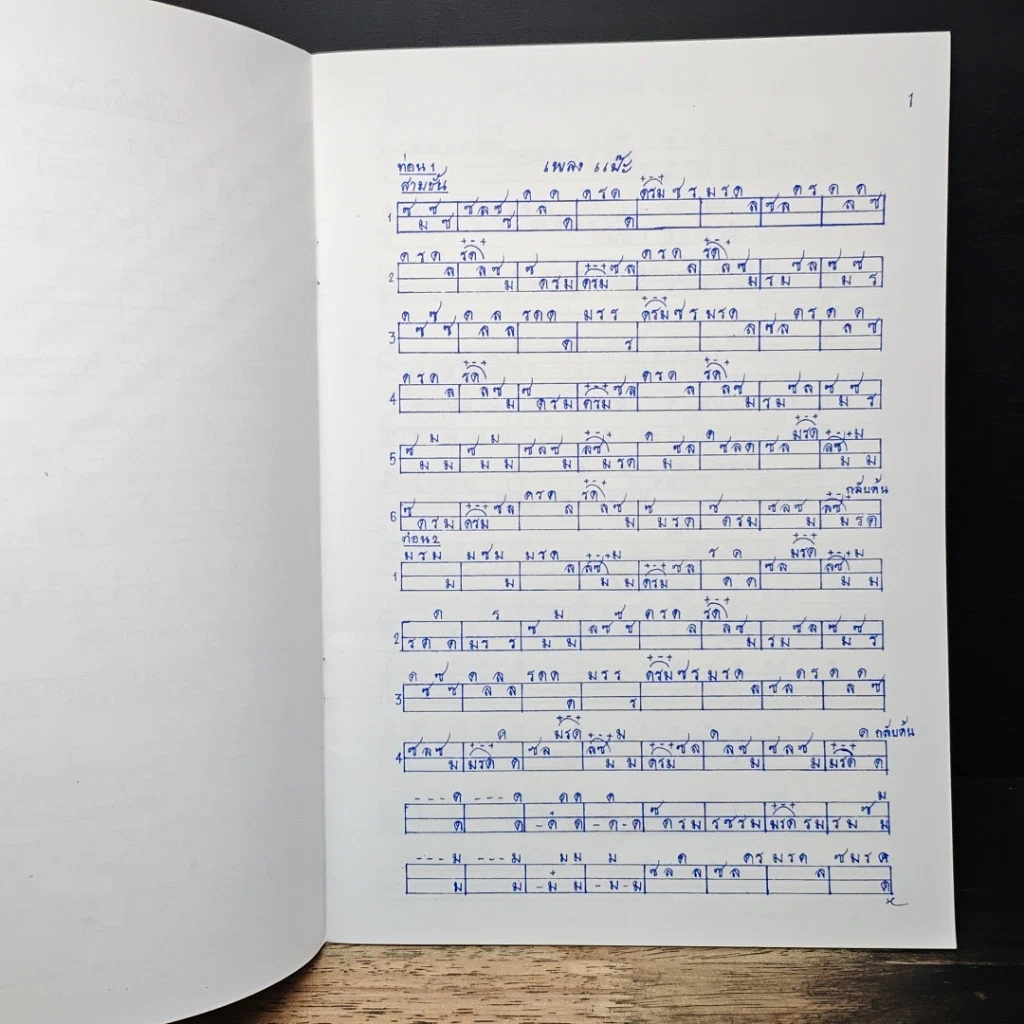 1
ท่อน 1 เพลง แป๊ะ
สามชั้น
+ - +
ด ด ด ร ด ดรม ซ ร ม ร ด ด ร ด ด
1 ซ ซ ซ ล ซ ล ล ซ ล ล ซ
ม ซ ซ ด ด
+ - + + - +
ด ร ด รด ด ร ด รด
2 ล ล ซ ซ + - + ซ ล ล ล ซ ซ ล ซ ซ
ม ด ร ม ดรม ม ร ม ม ร
+ - +
ด ซ ด ล ร ด ด ม ร ร ดรม ซ ร ม ร ด ด ร ด ด
3 ซ ซ ล ล ล ซ ล ล ซ
ด ร
+ - + + - +
ด ร ด รด ด ร ด รด
4 ล ล ซ ซ + - + ซ ล ล ล ซ ซ ล ซ ซ
ม ด ร ม ดรม ม ร ม ม ร
+ - +
ม ม + - + ด ด มรด + - + ม
5 ซ ซ ซ ล ซ ลซ ซ ล ซ ล ด ซ ล ลซ
ม ม ม ม ม ม ร ด ม ม ม
+ - + กลับต้น
ด ร ด รด + - +
6 ซ + - + ซ ล ล ล ซ ซ ซ ซ ล ซ ลซ
ด ร ม ดรม ม ม ร ด ด ร ม ม ม ร ด
ท่อน 2
+ - +
ม ร ม ม ซ ม ม ร ด + - + ม ร ด มรด + - + ม
1 ล ลซ + - + ซ ล ซ ล ลซ
ม ม ม ม ดรม ด ด ม ม
+ - +
ด ร ม ด ร ด รด
2 ซ ล ซ ซ ล ล ซ ซ ล ซ ซ
ร ด ด ม ร ร ม ม ม ร ม ม ร
+ - +
ด ซ ด ล ร ด ด ม ร ร ดรม ซ ร ม ร ด ด ร ด ด
3 ซ ซ ล ล ล ซ ล ล ซ
ด ร
+ - +
ด มรด + - + ม ด ด กลับต้น
4 ซ ล ซ + - + ซ ล ลซ + - + ซ ล ล ซ ซ ล ซ + - +
ม มรด ด ม ม ดรม ม ม มรด ด
- - - ด - - - ด ด ด ด ม
+ ซ + - + ซ
ด ด - ด ด - ด - ด ด ร ม ร ซ ร ม มรด ร ม ร ม ม
- - - ม - - - ม ม ม ม ด ด ร ม ร ด ซ ม ร ด
+ ซ ล ล ซ ล ล
ม ม - ม ม - ม - ม ด